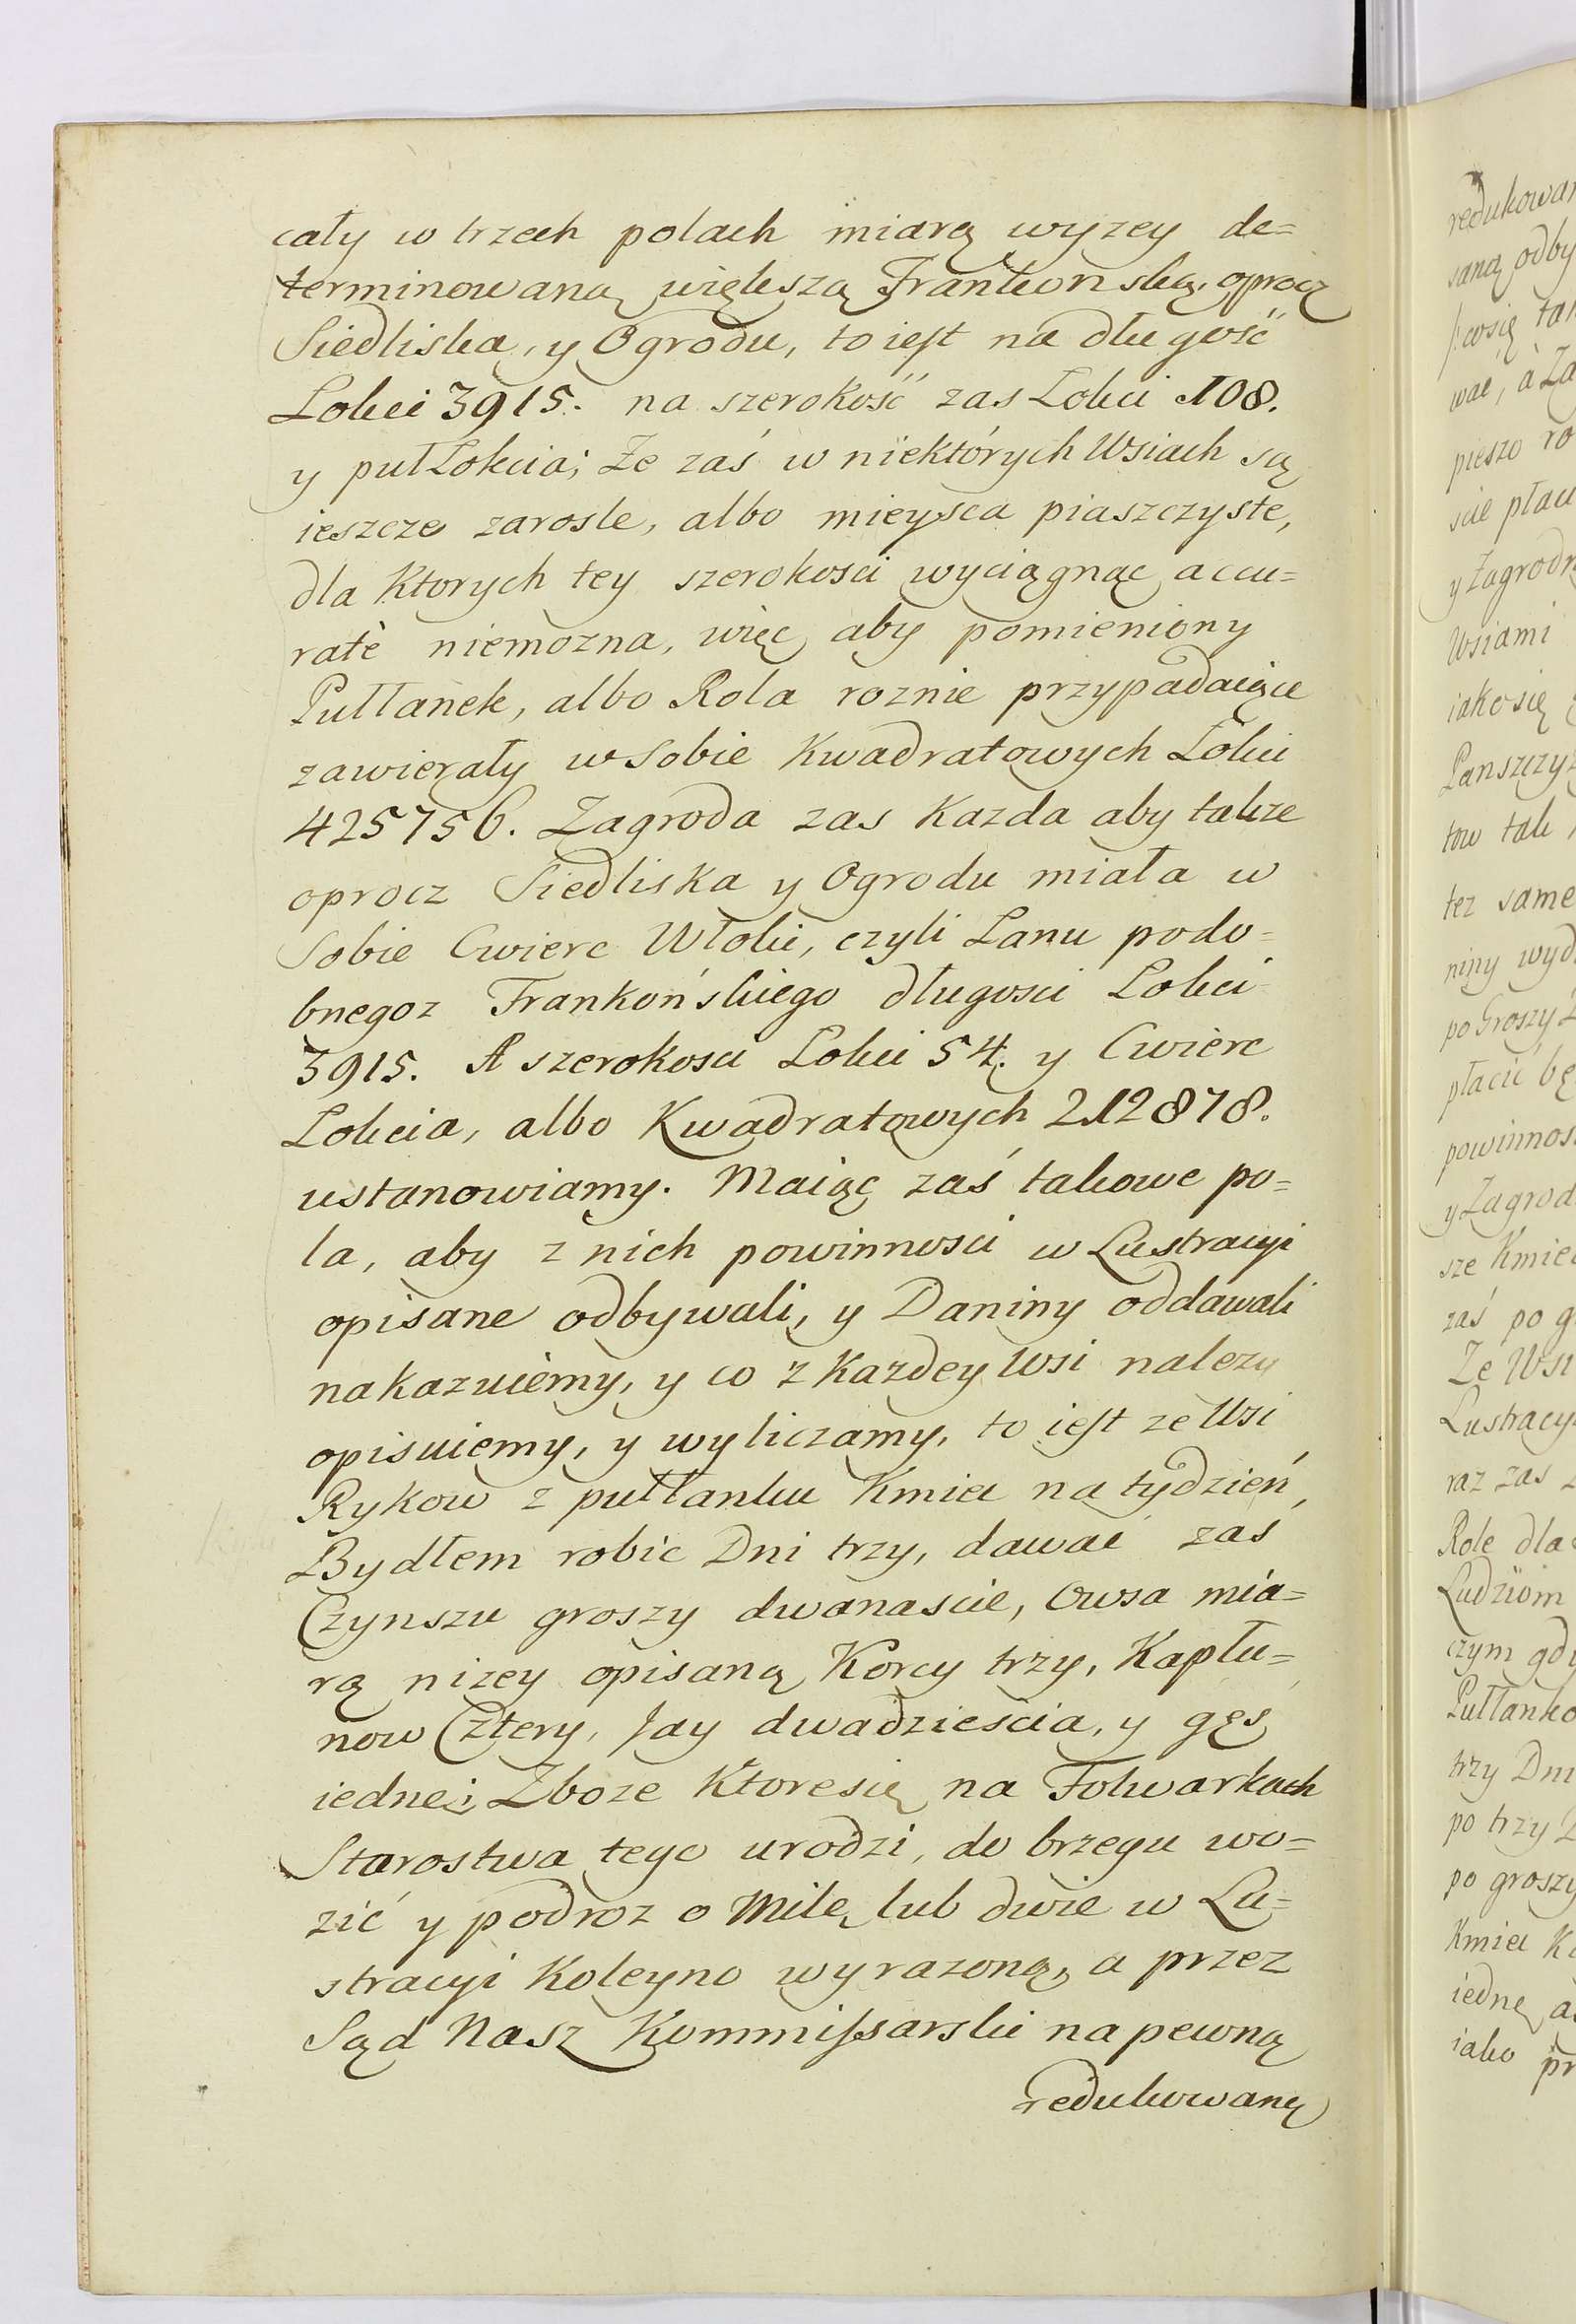 cały w trzech polach miarą wyzey de=
terminowaną większą Frankonską, oprocz
Siedliska, y Ogrodu, to iest na długość
Lokci 3915. na szerokość zas Lokci 108.
y puł Lokcia; Ze zaś w niektórych Wsiach są
ieszcze zarosle, albo mieysca piaszczyste,
dla Ktorych tey szerokosci wyciągnąc accu=
ratè niemozna, więc aby pomieniony
Pułłanek, albo Rola roznie przypadaiące
zawierały w sobie Kwadratowych Lokci
425756. Zagroda zas Kazda aby takze
oprocz Siedliska y Ogrodu miała w
Sobie Cwierc Włoki, czyli Lanu podo=
bnegoz Frankońskiego długosci Lokci
3915. A szerokosci Lokci 54. y Cwierc
Lokcia, albo Kwadratowych 212878.
ustanowiamy. Maiąc zaś takowe po=
la, aby z nich powinnosci w Lustracyi
opisane odbywali, y Daniny oddawali
nakazuiemy, y co z Kazdey Wsi nalezy
opisuiemy, y wyliczamy, to iest ze Wsi
Rykow z pułłanku Kmieć na tydzień,
Bydłem robic Dni trzy, dawać zaś
Czynszu groszy dwanascie, Owsa mia=
rą nizey opisaną Korcy trzy, Kapłu=
now Cztery, Jay dwadziescia, y gęs
iednę; Zboze Ktore się na Folwarkach
Starostwa tego urodzi, do brzegu wo=
zić y podroz o Milę lub dwie w Lu=
stracyi Koleyno wyrazoną, a przez
Sąd Nasz Kommissarski na pewną
redukowaną
redukowan
saną odby
się tak
wac, a Za
pieszo ro
y Zagrodn
Wsiami
iako się
Panszczyz
tow tak
tez same
niny wyd
po Groszy
płacić bę
powinnos
y Zagrod
sze Kmiec
zaś po g
Ze Wsi
Lustracyi
raz zas
Role dla
Ludziom
czym gdy
Pułłanko
trzy Dni
po trzy
po groszy
Kmieć Ka
iednę a
iako pr